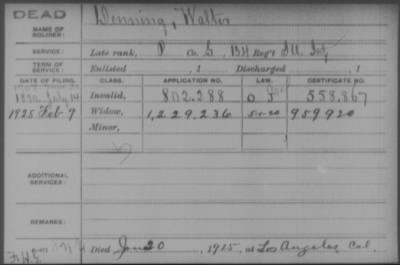 DEAD
NAME OF SOLDIER: Denning, Walter
SERVICE: Late rank, P Co. G, 134 Reg't Ill. Inf
TERM OF SERVICE: Enlisted , 1 Discharged , 1
DATE OF FILING. CLASS. APPLICATION NO. LAW. CERTIFICATE NO.
1890 July 14 Invalid, 802.288 558.867
1925 Feb 9 Widow, 1,229,236 5-1-20 959920
Minor,
ADDITIONAL SERVICES:
REMARKS:
Died Jan 20, 1925, at Los Angeles Cal.